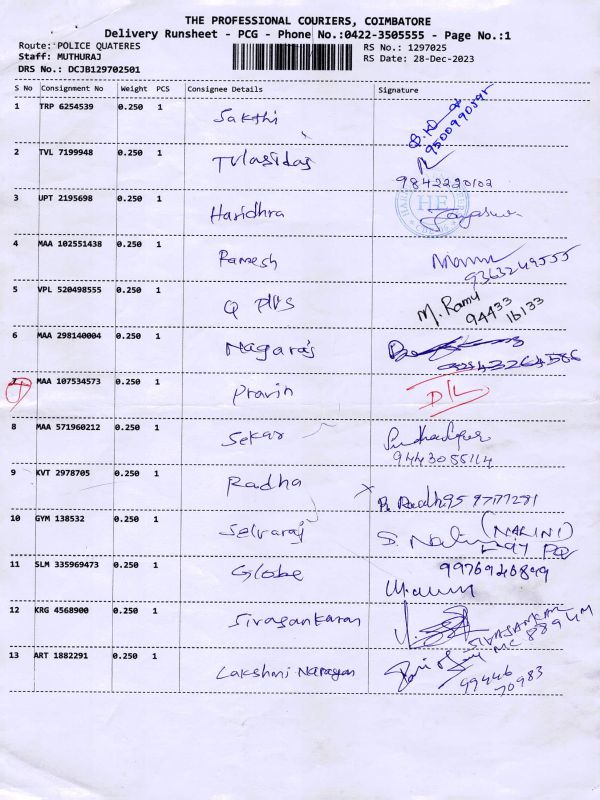 THE PROFESSIONAL COURIERS, COIMBATORE
Delivery Runsheet - PCG - Phone No.:0422-3505555 - Page No.:1
Route: POLICE QUATERES
RS No.: 1297025
Staff: MUTHURAJ
RS Date: 28-Dec-2023
DRS No.: DCJB129702501
S No Consignment No Weight PCS Consignee Details Signature
1 TRP 6254539 0.250 1 Sakthi
9500990595
2 TVL 7199948 0.250 1 Tvlasidas
9842220102
3 UPT 2195698 0.250 1 Haridhra
HE
4 MAA 102551438 0.250 1 Ramesh
9363249555
5 VPL 520498555 0.250 1 Q plus M. Ramu
94433
16133
6 MAA 298140004 0.250 1 Nagaraj
7 MAA 107534573 0.250 1 Pravin D/L
8 MAA 571960212 0.250 1 Sekar
9443055114
9 KVT 2978705 0.250 1 Radha
10 GYM 138532 0.250 1 Selvaraj S. Nalini (NALINI)
11 SLM 335969473 0.250 1 Globe 9976946899
12 KRG 4568900 0.250 1 Sivasankaran
SIVASANKAR
MC 8894M
13 ART 1882291 0.250 1 Lakshmi Narayan
99446
70983